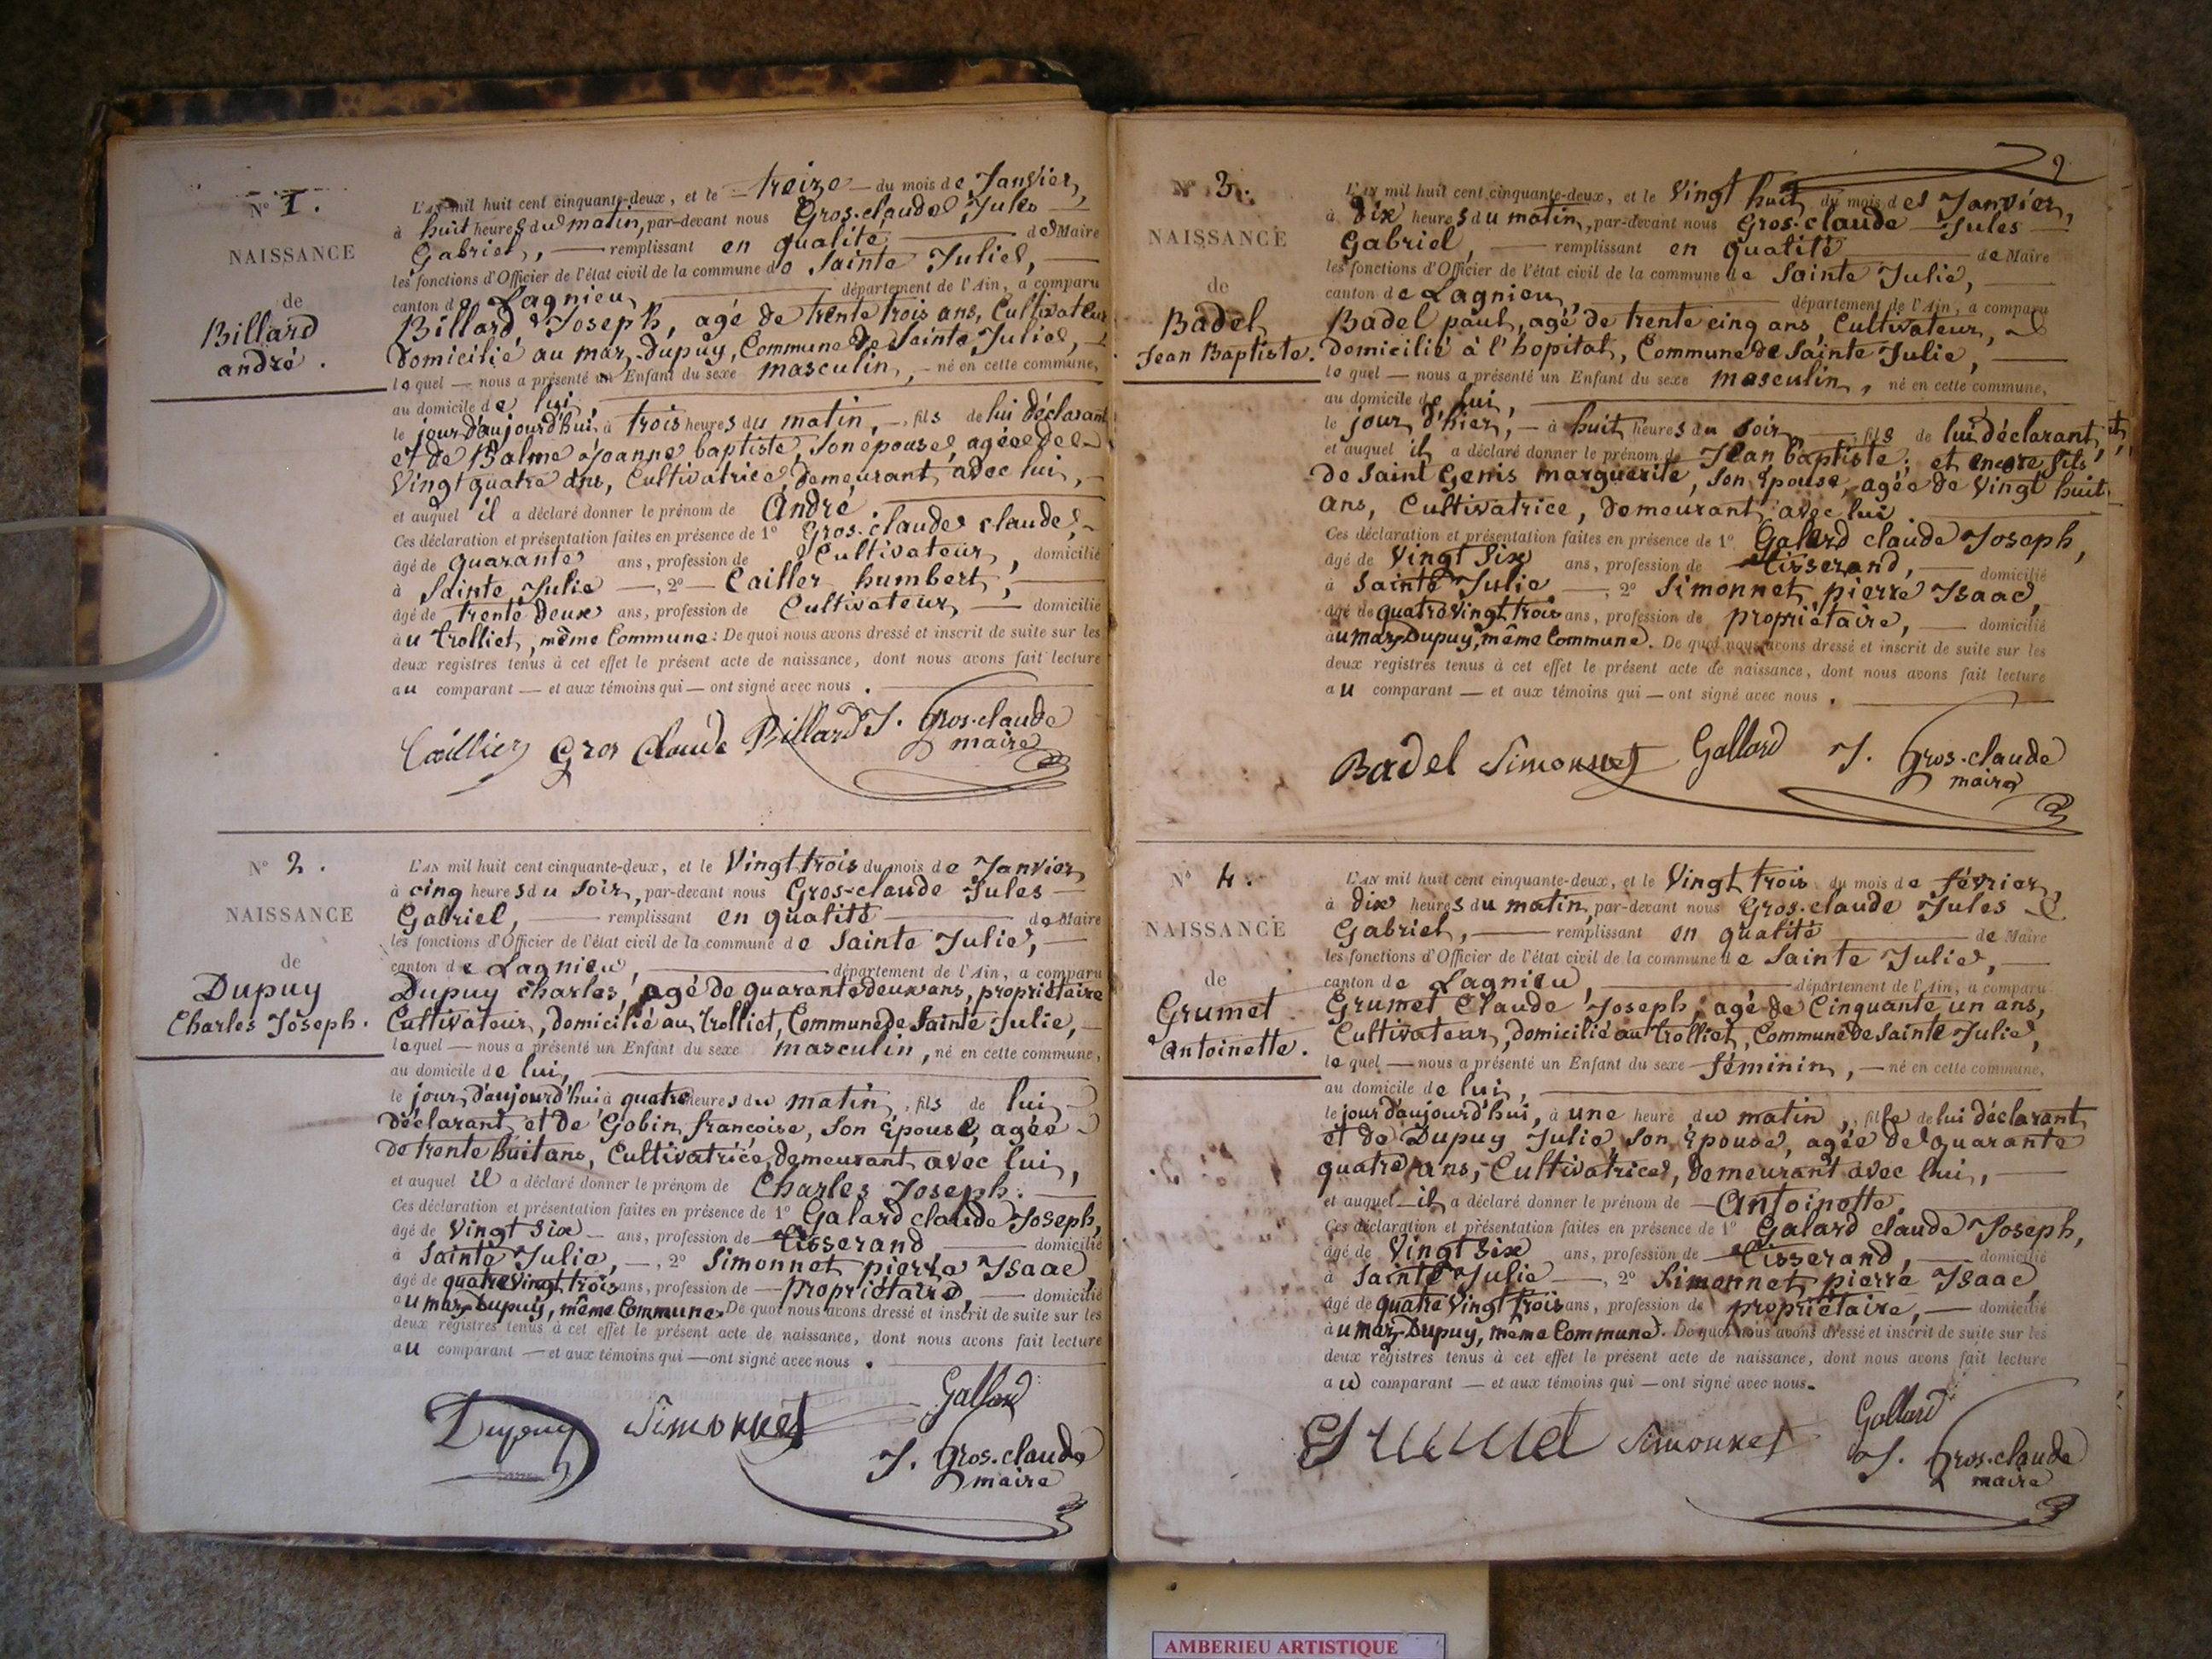 N° 1.
NAISSANCE
de
Billard
andré.
L'AN mil huit cent cinquante-deux, et le treize du mois de Janvier,
à huit heures du matin, par-devant nous Gros-claude Jules
Gabriel, remplissant en qualité de Maire
les fonctions d'Officier de l'état civil de la commune de Sainte Julie,
canton de Lagnieu, département de l'Ain, a comparu
Billard Joseph, agé de trente trois ans, Cultivateur
domicilié au mar-Dupuy, Commune de Sainte Julie,
lequel nous a présenté un Enfant du sexe masculin, né en cette commune,
au domicile de lui,
le jour d'aujourd'hui à trois heures du matin, fils de lui déclarant
et de Balme Joanne baptiste, Son epouse, agée de
Vingt quatre ans, Cultivatrice, demeurant avec lui,
et auquel il a déclaré donner le prénom de André.
Ces déclaration et présentation faites en présence de 1° Gros-claude claude,
âgé de quarante ans, profession de Cultivateur, domicilié
à Sainte Julie, 2° Cailler humbert,
âgé de trente deux ans, profession de Cultivateur domicilié
au trolliet, même Commune: De quoi nous avons dressé et inscrit de suite sur les
deux registres tenus à cet effet le présent acte de naissance, dont nous avons fait lecture
au comparant et aux témoins qui ont signé avec nous.
Caillier Gros Claude Billard J. Gros-claude
maire
N° 2.
NAISSANCE
de
Dupuy
Charles Joseph.
L'AN mil huit cent cinquante-deux, et le Vingt trois du mois de Janvier
à cinq heures du Soir, par-devant nous Gros-claude Jules
Gabriel, remplissant en qualité de Maire
les fonctions d'Officier de l'état civil de la commune de Sainte Julie,
canton de Lagnieu, département de l'Ain, a comparu
Dupuy Charles, agé de quarante deux ans, propriétaire
Cultivateur, domicilié au trolliet, Commune de Sainte Julie,
lequel nous a présenté un Enfant du sexe masculin, né en cette commune,
au domicile de lui,
le jour d'aujourd'hui à quatre heures du matin, fils de lui
déclarant et de Gobin françoise, Son Épouse, agée
de trente huit ans, Cultivatrice, demeurant avec lui,
et auquel il a déclaré donner le prénom de Charles Joseph.
Ces déclaration et présentation faites en présence de 1° Galard claude Joseph,
âgé de Vingt Six ans, profession de tisserand domicilié
à Sainte Julie, 2° Simonnet pierre Isaac,
âgé de quatre Vingt trois ans, profession de propriétaire, domicilié
au mar-Dupuy, même Commune. De quoi nous avons dressé et inscrit de suite sur les
deux registres tenus à cet effet le présent acte de naissance, dont nous avons fait lecture
au comparant et aux témoins qui ont signé avec nous.
Dupuy Simonnet Gallard
J. Gros-claude
maire
N° 3.
NAISSANCE
de
Badel
Jean Baptiste.
L'AN mil huit cent cinquante-deux, et le Vingt huit du mois de Janvier,
à dix heures du matin, par-devant nous Gros-claude Jules
Gabriel, remplissant en qualité de Maire
les fonctions d'Officier de l'état civil de la commune de Sainte Julie,
canton de Lagnieu, département de l'Ain, a comparu
Badel paul, agé de trente cinq ans, Cultivateur,
domicilié à l'hopital, Commune de Sainte Julie,
lequel nous a présenté un Enfant du sexe masculin, né en cette commune,
au domicile de lui,
le jour d'hier, à huit heures du Soir, fils de lui déclarant,
et auquel il a déclaré donner le prénom de Jean baptiste; et encore fils
de Saint Genis marguerite, Son Épouse, agée de Vingt huit
ans, Cultivatrice, demeurant avec lui
Ces déclaration et présentation faites en présence de 1° Galard claude Joseph,
âgé de Vingt Six ans, profession de tisserand, domicilié
à Sainte Julie, 2° Simonnet pierre Isaac,
âgé de quatre Vingt trois ans, profession de propriétaire, domicilié
au mar-Dupuy, même Commune. De quoi nous avons dressé et inscrit de suite sur les
deux registres tenus à cet effet le présent acte de naissance, dont nous avons fait lecture
au comparant et aux témoins qui ont signé avec nous.
Badel Simonnet Gallard J. Gros-claude
maire
N° 4.
NAISSANCE
de
Grumet
Antoinette.
L'AN mil huit cent cinquante-deux, et le Vingt trois du mois de février,
à dix heures du matin, par-devant nous Gros-claude Jules
Gabriel, remplissant en qualité de Maire
les fonctions d'Officier de l'état civil de la commune de Sainte Julie,
canton de Lagnieu, département de l'Ain, a comparu
Grumet Claude Joseph, agé de Cinquante un ans,
Cultivateur, domicilié au trolliet, Commune de Sainte Julie,
lequel nous a présenté un Enfant du sexe féminin, né en cette commune,
au domicile de lui,
le jour d'aujourd'hui, à une heure du matin, fille de lui déclarant
et de Dupuy Julie Son Épouse, agée de quarante
quatre ans, Cultivatrice, demeurant avec lui,
et auquel il a déclaré donner le prénom de Antoinette.
Ces déclaration et présentation faites en présence de 1° Galard claude Joseph,
âgé de Vingt Six ans, profession de tisserand, domicilié
à Sainte Julie, 2° Simonnet pierre Isaac,
âgé de quatre Vingt trois ans, profession de propriétaire, domicilié
au mar-Dupuy, même Commune. De quoi nous avons dressé et inscrit de suite sur les
deux registres tenus à cet effet le présent acte de naissance, dont nous avons fait lecture
au comparant et aux témoins qui ont signé avec nous.
Grumet Simonnet Gallard
J. Gros-claude
maire
AMBERIEU ARTISTIQUE